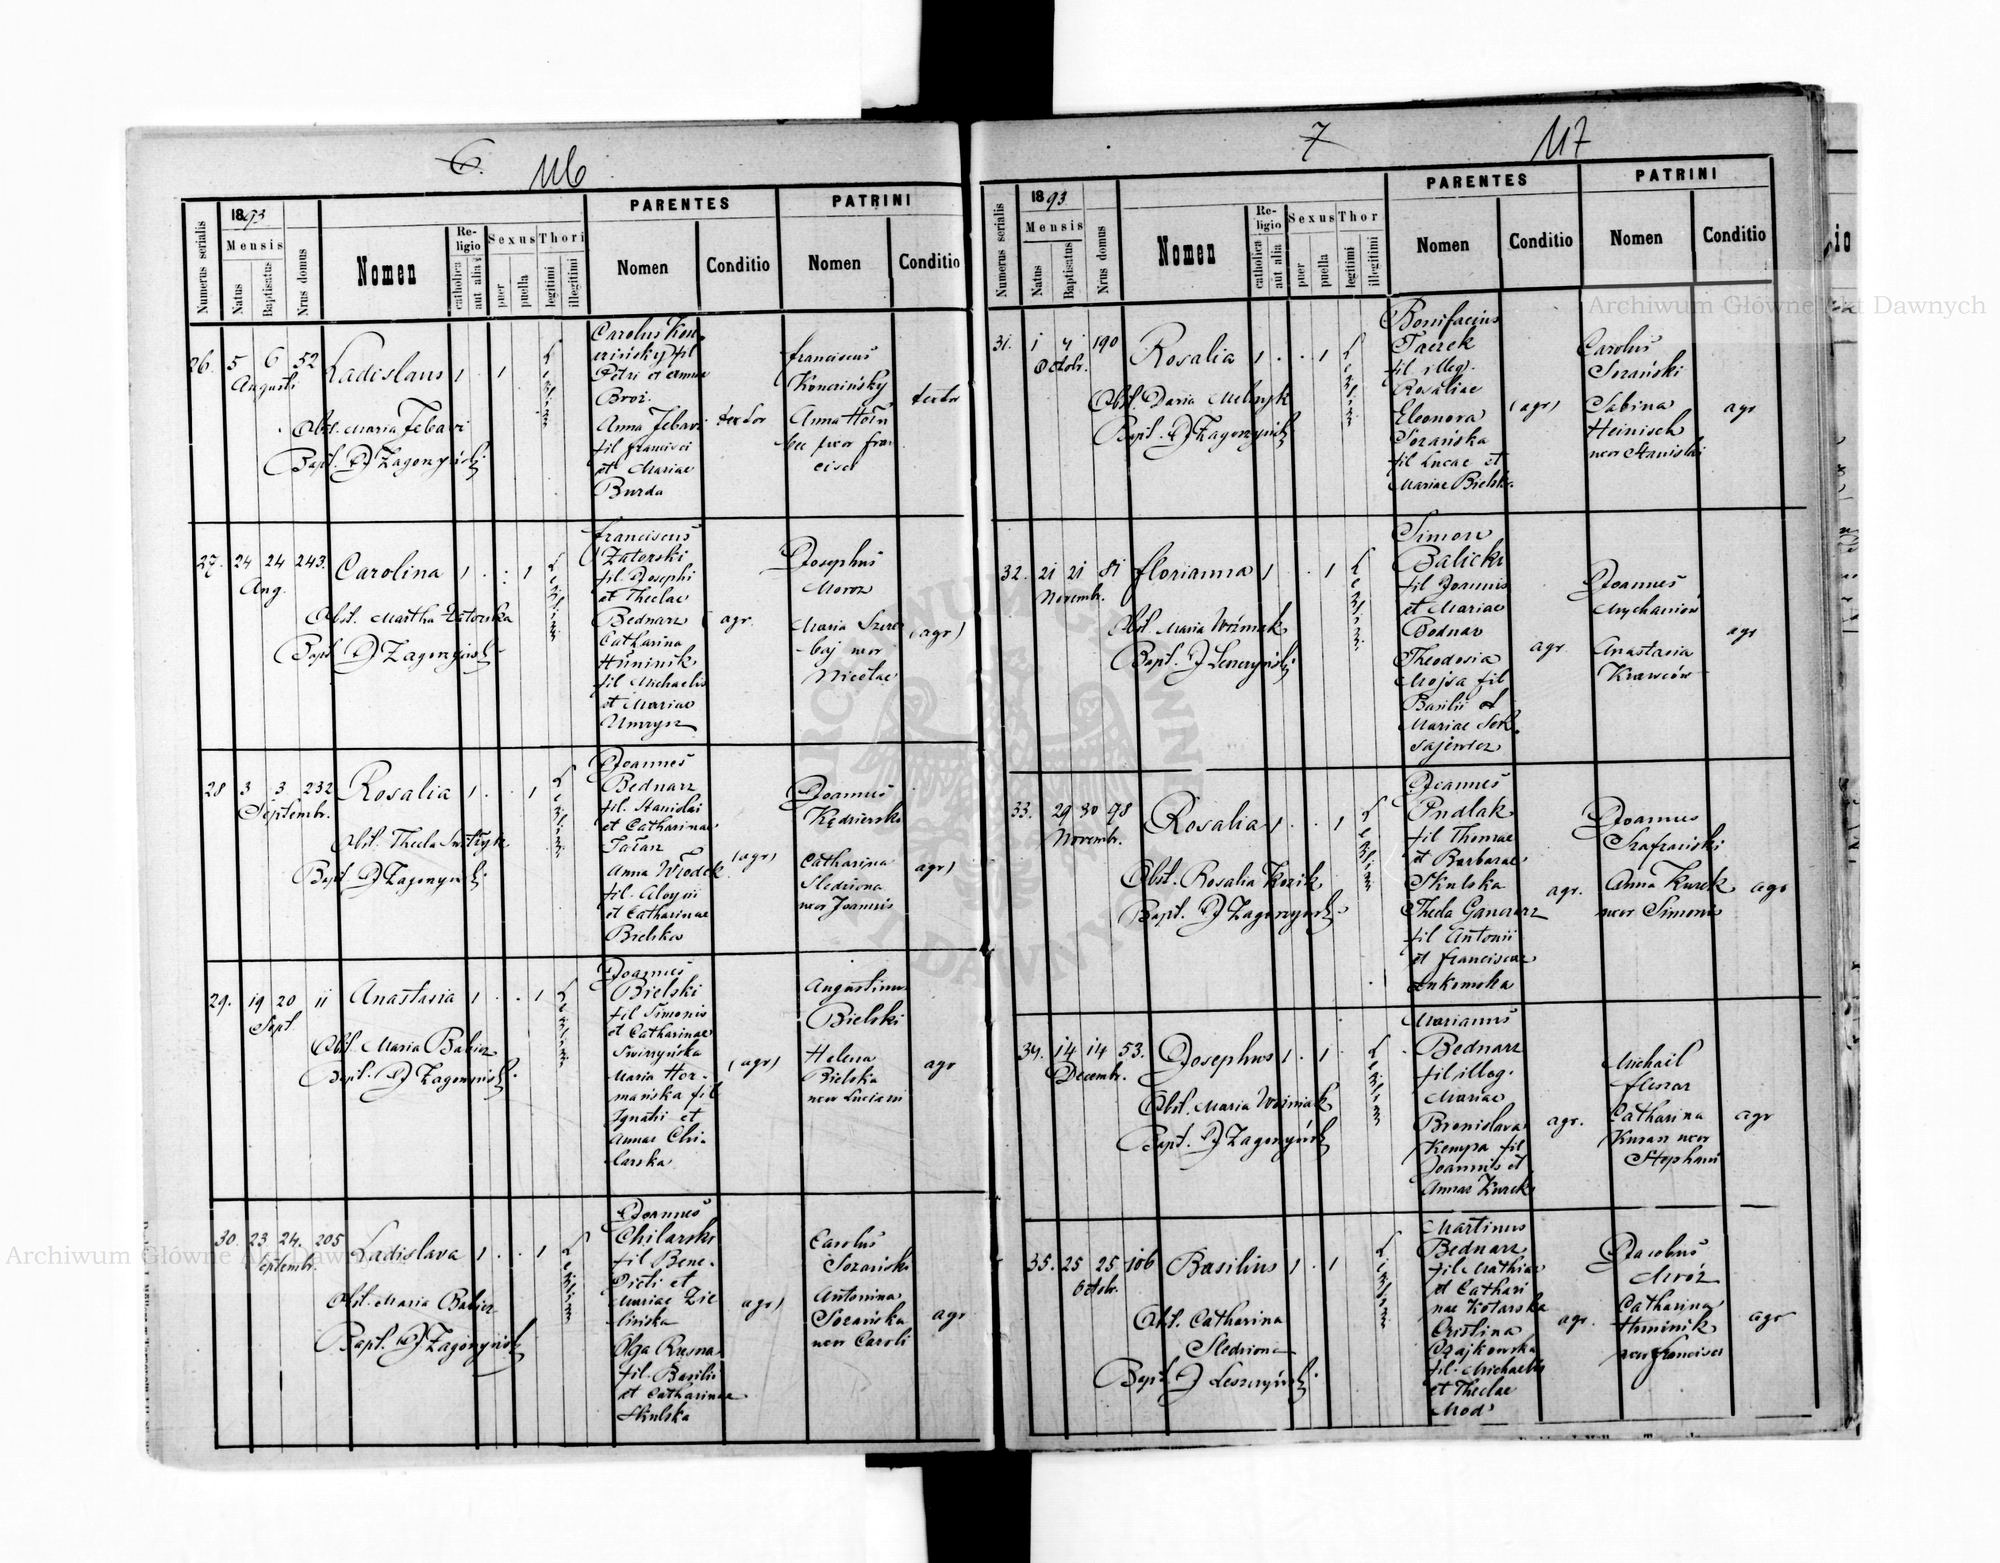 6. 116
Numerus serialis
1893
Mensis
Natus
Baptisatus
Nrus domus
Nomen
Religio
catholica
aut alia
Sexus
puer
puella
Thori
legitimi
illegitimi
PARENTES
Nomen
Conditio
PATRINI
Nomen
Conditio
26. 5 6 52 Ladislaus 1 . 1
Augusti
Obst. Maria Jebavi
Bapt. J Zagorzyński
Petri et Annae
Broz.
Anna Jebavi
fil francisci
et Mariae
Burda
textor
franciscus
Anna
textor
27. 24 24 243. Carolina 1 . : 1
Aug.
Obst. Martha Zatorska
Bapt. J Zagorzyński
franciscus
Zatorski
fil Josephi
et Theclae
Bednarz
Catharina
Huminik
fil Michaelis
et Mariae
agr.
Josephus
Moroz
Maria
uxor
Nicolae
(agr)
28 3 3 232 Rosalia 1 . . 1
Septembr.
Obst. Thecla
Bapt. J Zagorzyński
Joannes
Bednarz
fil. Stanislai
et Catharinae
Anna Wlodek
fil. Aloysii
et Catharinae
Bielska
(agr)
Joannes
Kędzierski
Catharina
Sledziona
uxor Joannis
agr)
29. 19 20 11 Anastasia 1 . . 1
Sept.
Obst. Maria Babicz
Bapt. J Zagorzyński
Joannes
Bielski
fil Simonis
et Catharinae
Maria Her-
mańska fil
Ignatii et
Annae Chi-
larska
(agr)
Augustinus
Bielski
Helena
Bielska
uxor Luciani
agr
30. 23 24. 205 Ladislava 1 . . 1
Septembr.
Obst. Maria Babicz
Bapt. J Zagorzyński
Joannes
Chilarski
fil Bene-
dicti et
Mariae Zie
lińska
Olga Rusna
fil. Basilii
et Catharinae
Skulska
agr)
Carolus
Sozański
Antonina
Sozańska
uxor Caroli
agr
7 117
Numerus serialis
1893
Mensis
Natus
Baptisatus
Nrus domus
Nomen
Religio
catholica
aut alia
Sexus
puer
puella
Thor
legitimi
illegitimi
PARENTES
Nomen
Conditio
PATRINI
Nomen
Conditio
31. 1 4 190 Rosalia 1 . . 1
Octobr.
Obst. Daria Melnyk
Bapt. J Zagorzyński
Bonifacius
fil illeg.
Rosaliae
Eleonora
Sozańska
fil Lucae et
Mariae Bielska
(agr)
Carolus
Sozański
Sabina
Heinisch
uxor Stanislai
agr
32. 21 21 81 florianna 1 . 1
Novembr.
Obst. Maria Woźniak
Bapt. J Leszczyński
Simon
Balicki
fil Joannis
et Mariae
Bodnar
Theodosia
Mojsa fil
Basilii et
Mariae
agr.
Joannes
Anastasia
Krawców
agr
33. 29 30 98 Rosalia 1 . . 1
Novembr.
Obst. Rosalia Kozik
Bapt. J Zagorzyński
Joannes
Pudlak
fil Thomae
et Barbarae
Skulska
Thecla Gancarz
fil Antonii
et franciscae
agr.
Joannes
Szafrański
Anna Kurek
uxor Simonis
agr
34. 14 14 53. Josephus 1 . 1
Decembr.
Obst. Maria Woźniak
Bapt. J Zagorzyński
Marianus
Bednarz
fil illeg.
Mariae
Bronislava
Kempa fil
Joannis et
Annae Kurek
agr.
Michael
Catharina
uxor
Stephani
agr
35. 25 25 106 Basilius 1 . 1
Octobr.
Obst. Catharina
Sledziona
Bapt. J Leszczyński
Martinus
Bednarz
fil. Mathiae
et Cathari
nae Kotarska
Cristina
Czajkowska
fil. Michaelis
et Theclae
Mod
agr.
Jacobus
Mróz
Catharina
Huminik
uxor francisci
agr
Archiwum Główne Akt Dawnych
Archiwum Główne Akt Dawnych